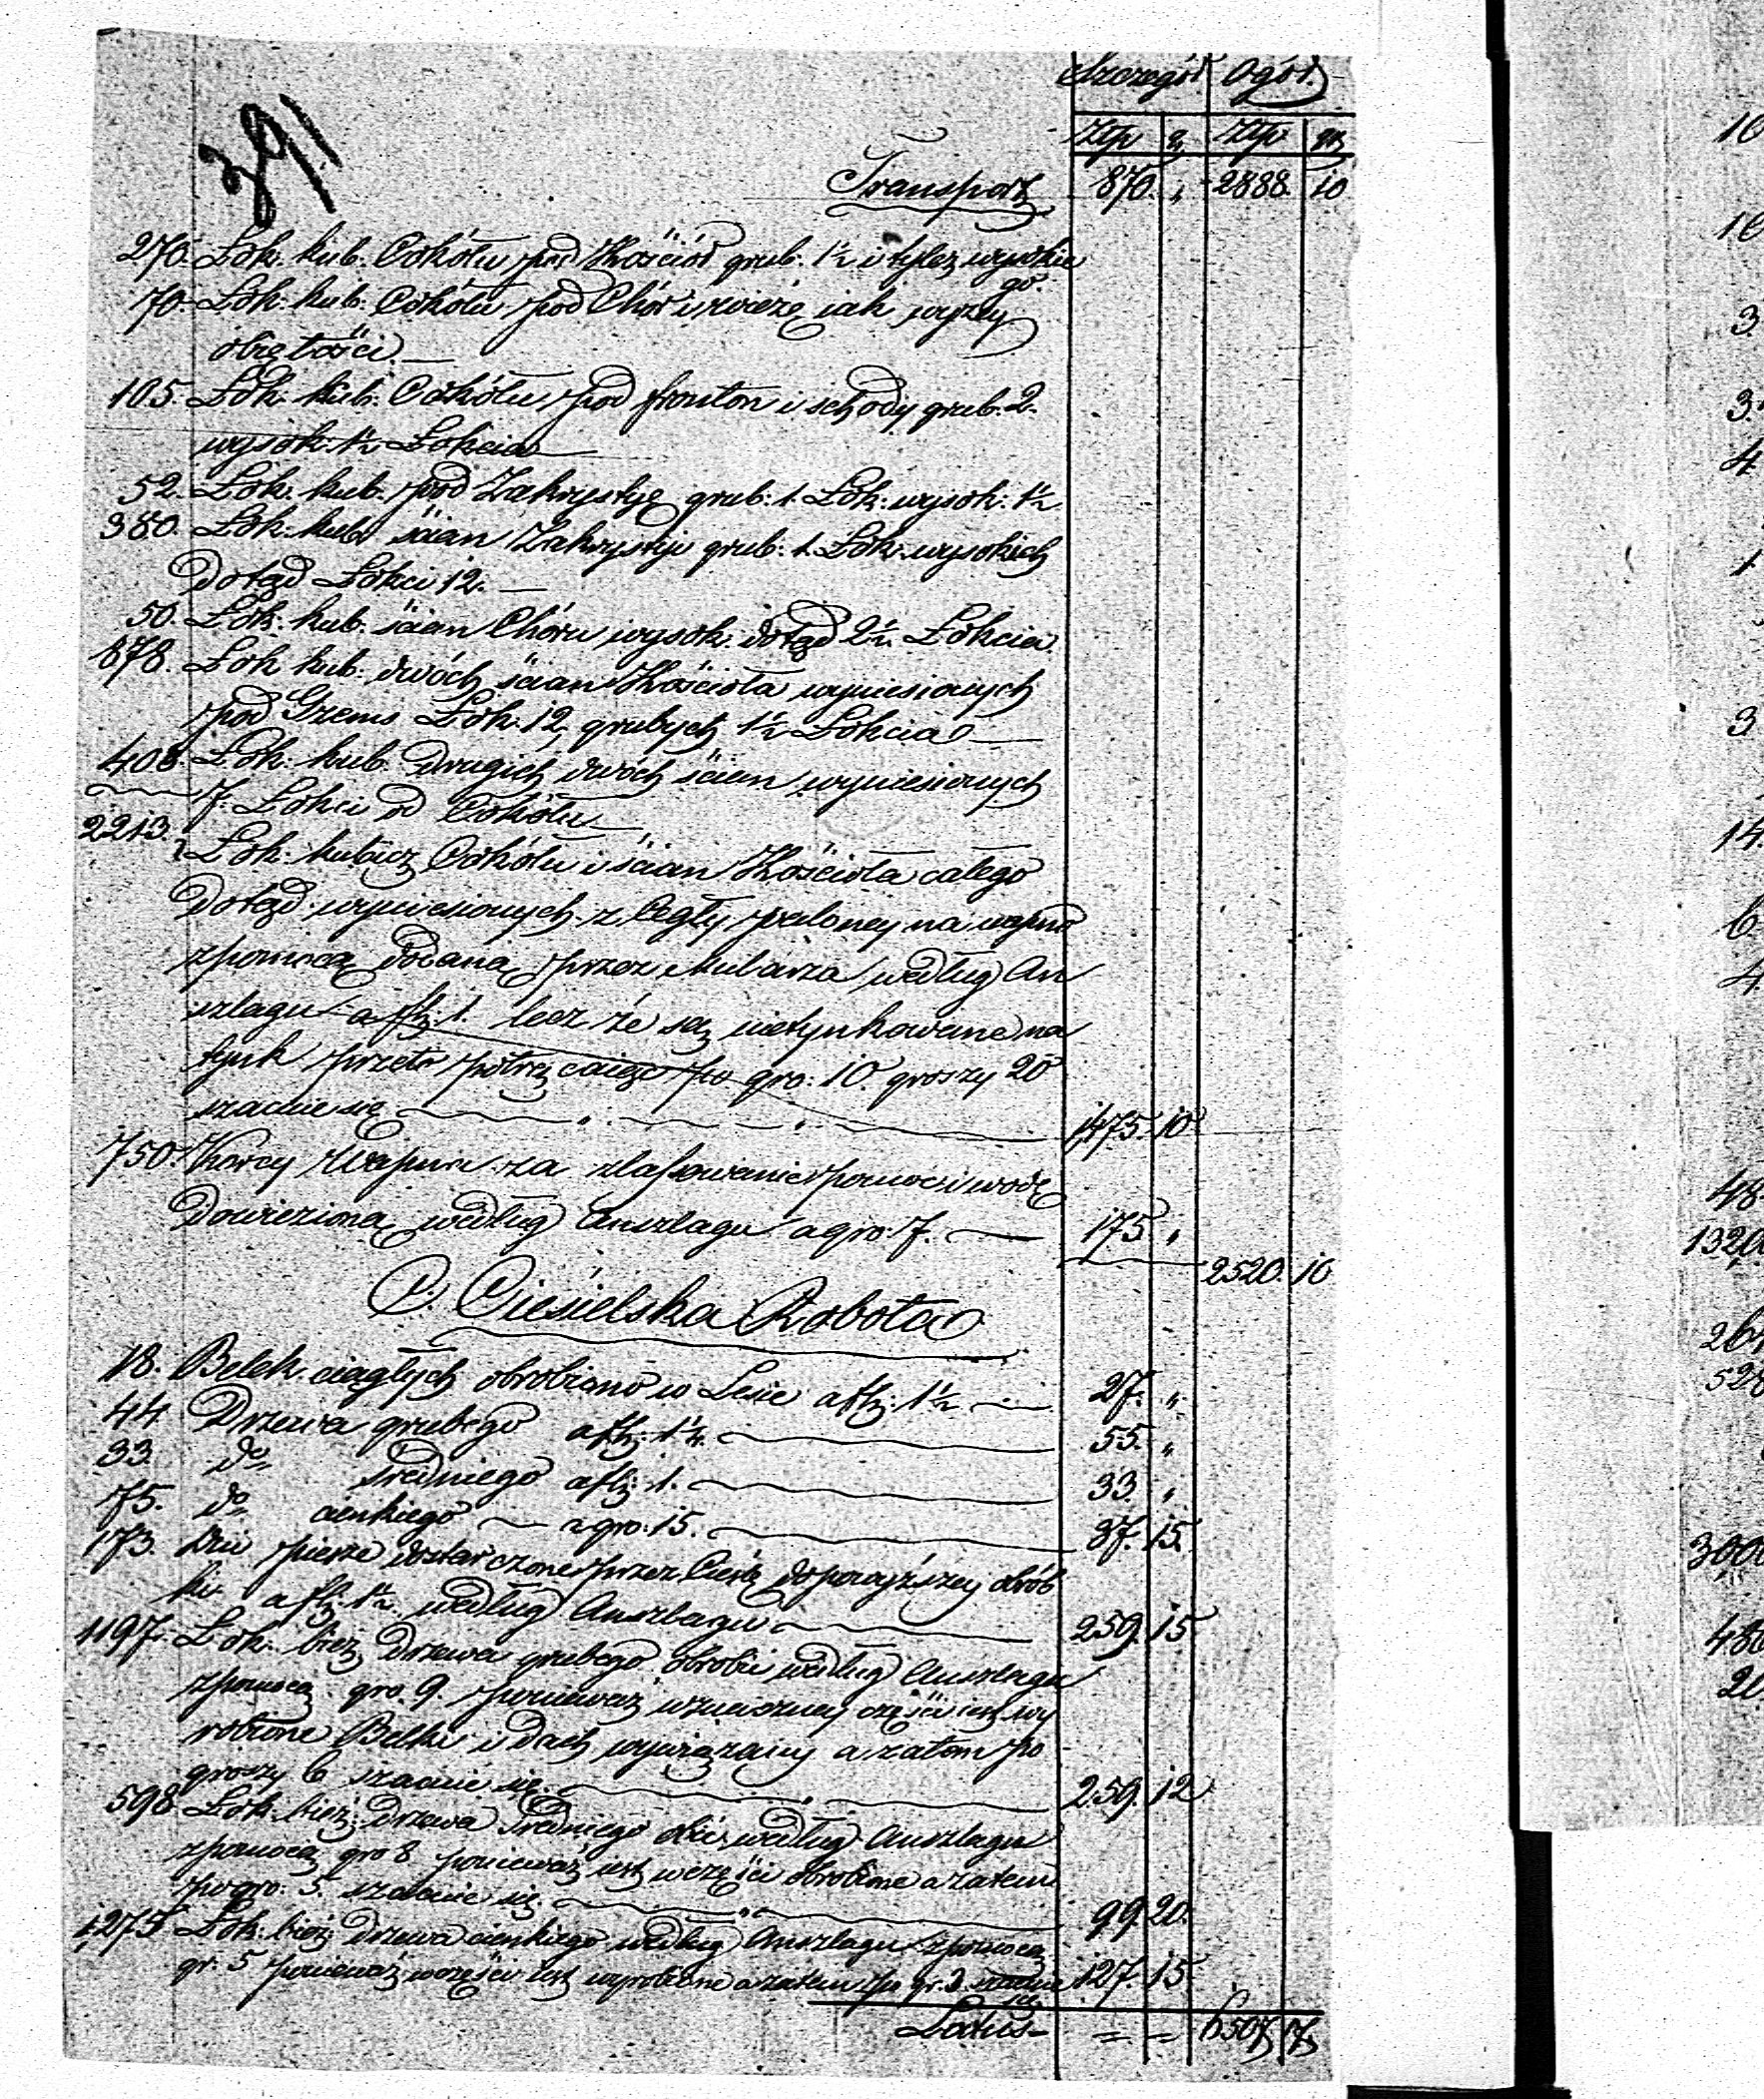 Szczegół Ogół
Złp g Złp gr
391
Transport 870. „ 2888. 10
270. Łok: kub: Cokółu pod Kościół grub: 1½ i tylez wysokie
go.
70. Łok: kub: Cokółu pod Chór i wieżę iak wyzey
obiętości.
105. Łok: kub: Cokółu pod fronton i schody grub. 2.
wysok: 1½ Łokcia
52. Łok. kub. pod Zakrystyę grub: 1. Łok: wysok: 1½
380. Łok: kub: ścian Zakrystyi grub: 1. Łok: wysokich
dotąd Łokci 12.
50. Łok: kub. ścian Chóru wysok. dotąd 2½ Łokcia.
878. Łok kub: dwóch ścian Kościoła wyniesionych
pod Gzems Łok. 12, grubych 1½ Łokcia
408. Łok: kub. drugich dwóch ścian wyniesionych
7. Łokci od Cokółu
2213. Łok: kubicz Cokółu i ścian Kościoła całego
dotąd wyniesionych z Cegły paloney na wapno
z pomocą dodaną przez Mularza według An
szlagu a fl: 1. lecz że są nietynkowane na
tynk przeto potrącaiąc po gro: 10. groszy 20
szacuie się 1,475. 10
750. Korcy Wapna za zlasowanie pomoc i wodę
dowiezioną według Anszlagu a gro: 7. 175. „
2520. 10
C. Ciesielska Robota
18. Belek ciągłych obrobiono w Lesie a fl: 1½ 27. „
44. Drzewa grubego a fl: 1¼. 55. „
33. do średniego a fl: 1. 33. „
75. do cienkiego a gro: 15. 37. 15.
173. Dni piesze dostarczone przez Cieślę do powyższey obrób
ki a fl: 1½ według Anszlagu 259. 15
1197. Łok: bież drzewa grubego obrobić według Anszlagu
z pomocą gro. 9. ponieważ w znaczney części iest wy
robione Belki i dach wywiązany a zatem po
groszy 6 szacuie się. 259. 12
598 Łok. bież: drzewa średniego według Anszlagu
z pomocą gro 8 ponieważ iest w części obrobione a zatem
po gro: 5. szacuie się. 99. 20.
1,275 Łok. bież: drzewa cienkiego według Anszlagu z pomocą
gr. 5 ponieważ w części iest wyrobione a zatem po gr. 3. szacuie 127. 15
się
Latus = = 6307 7